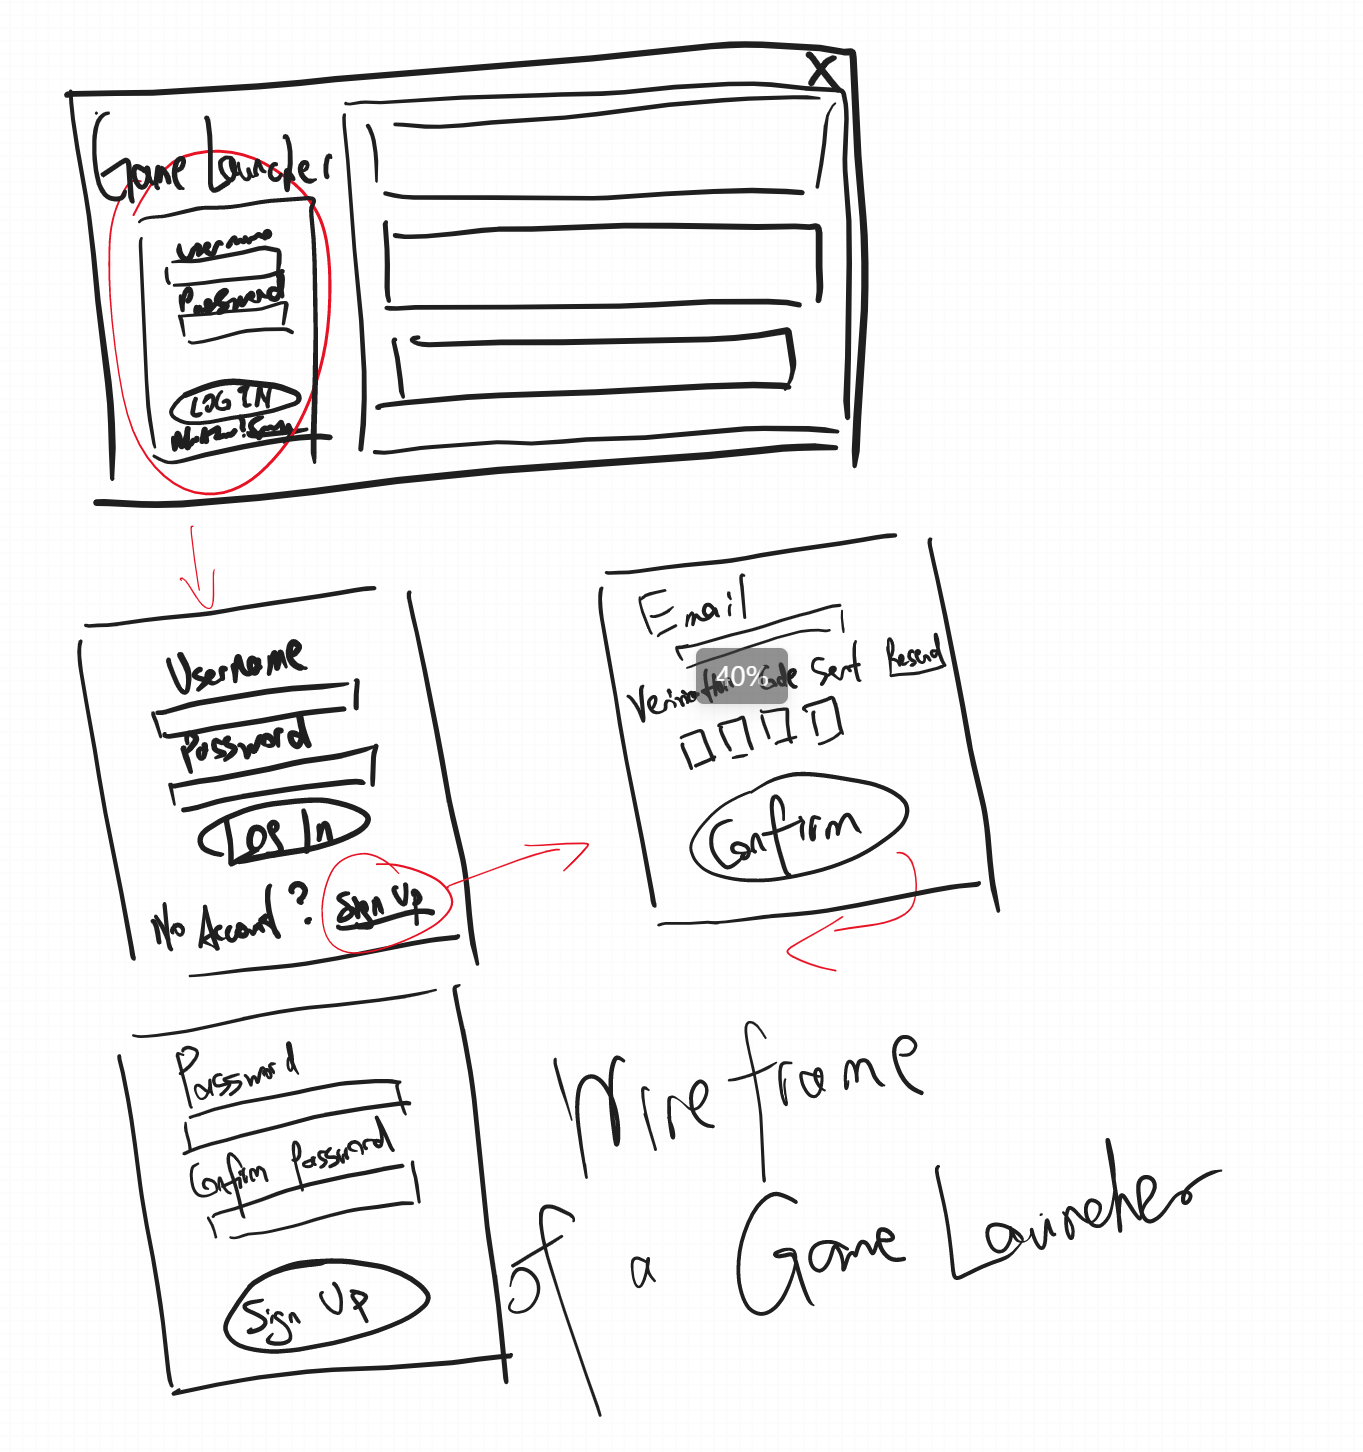 X
Game Launcher
Username
Password
LOG IN
Username
Password
Log In
No Account? Sign Up
Email
Code Sent Resend
40%
Confirm
Password
Confirm Password
Sign Up
Wireframe
of a Game Launcher